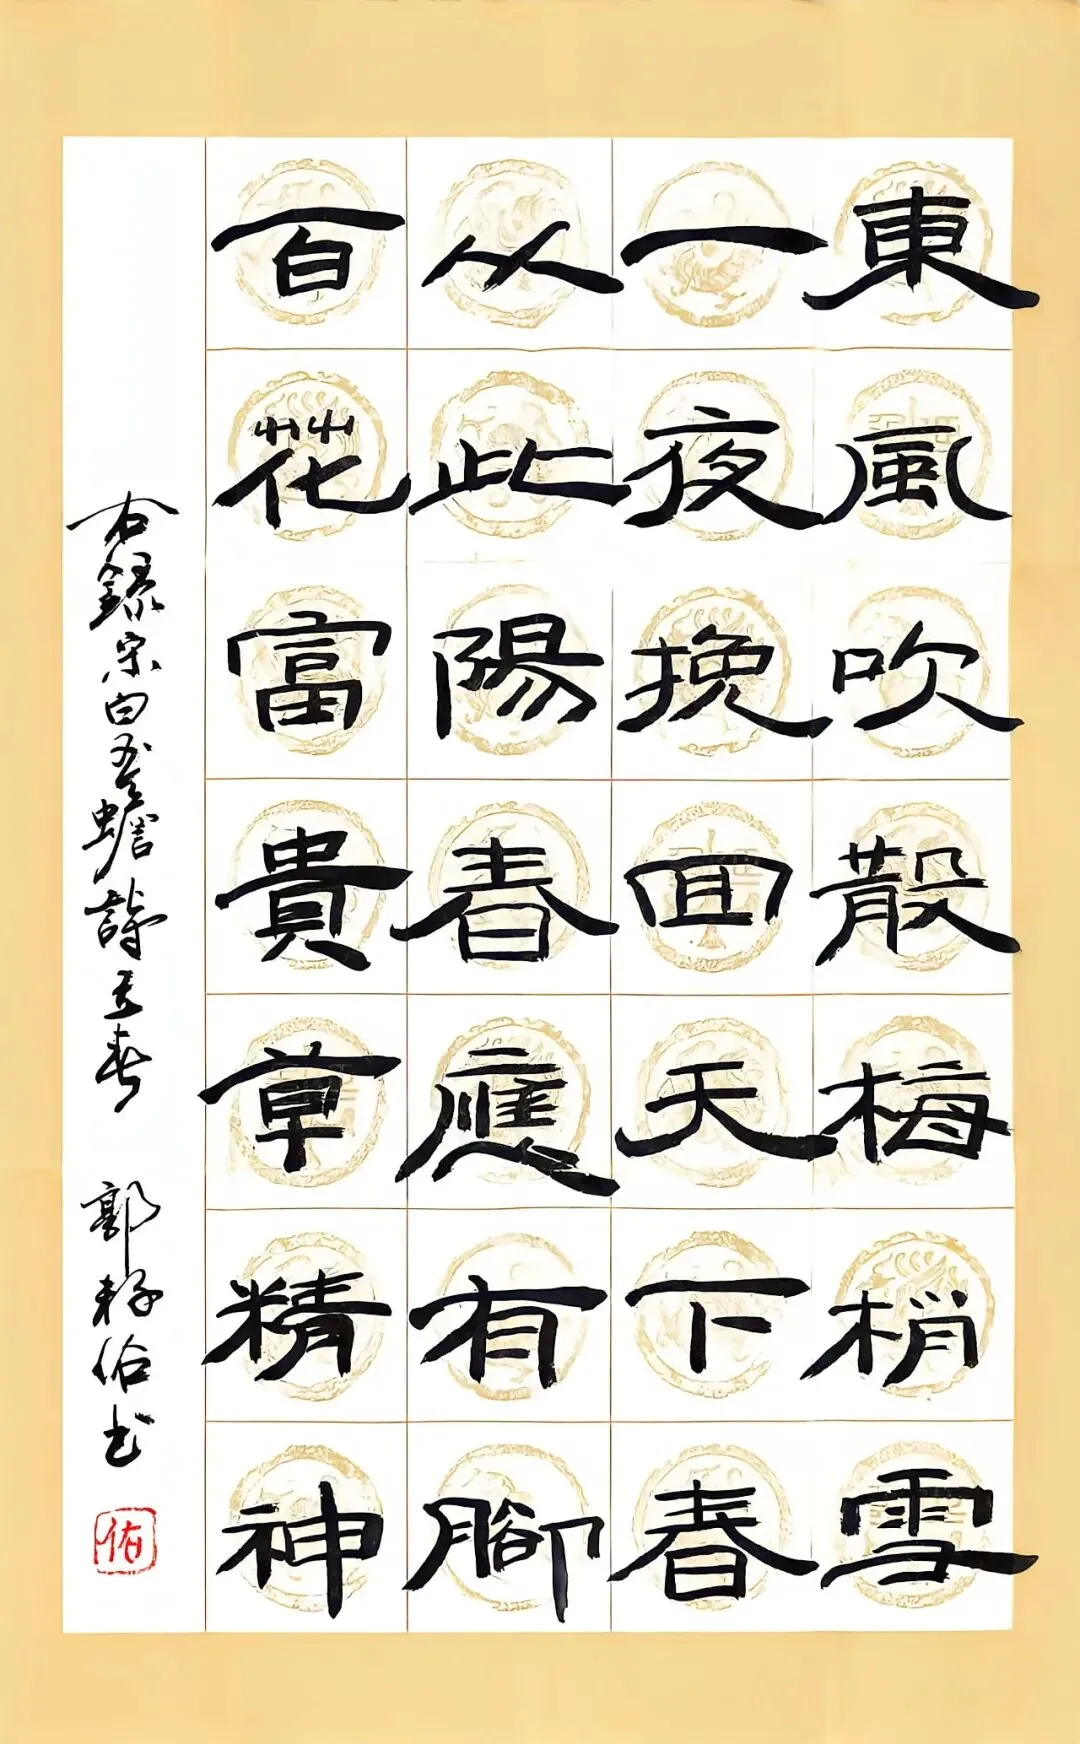 東風吹散梅梢雪
一夜挽回天下春
从此陽春應有腳
百花富貴草精神
右錄宋白玉蟾詩立春 郭籽佑书
佑